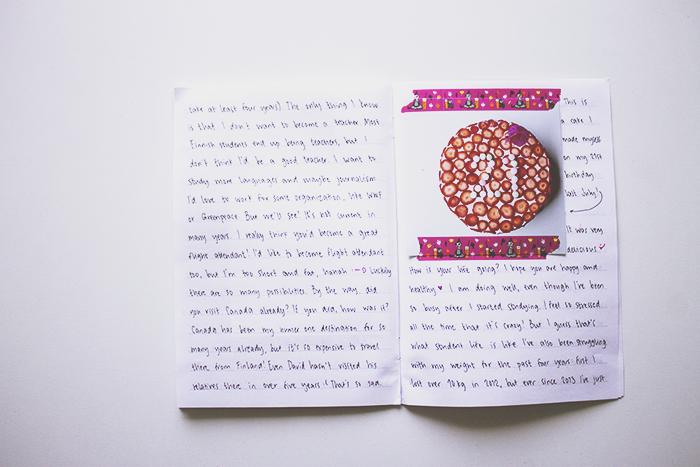 take at least four years). The only thing I know
is that I don't want to become a teacher. Most
Finnish students end up being teachers, but I
don't think I'd be a good teacher. I want to
study more languages and maybe journalism.
I'd love to work for some organization, like WWF
or Greenpeace. But we'll see! It's not current in
many years. I really think you'd become a great
flight attendant! I'd like to become flight attendant
too, but I'm too short and fat, hahah :-D Luckily
there are so many possibilities. By the way.. did
you visit Canada already? If you did, how was it?
Canada has been my number one destination for so
many years already, but it's so expensive to travel
there from Finland! Even David hasn't visited his
relatives there in over five years :( That's so sad.
This is
a cake I
made myself
on my 21st
birthday
last July!
It was very
delicious ♥
21
How is your life going? I hope you are happy and
healthy ♥ I am doing well, even though I've been
so busy after I started studying. I feel so stressed
all the time that it's crazy! But I guess that's
what student life is like. I've also been struggling
with my weight for the past four years: first I
lost over 20 kg in 2012, but ever since 2013 I've just